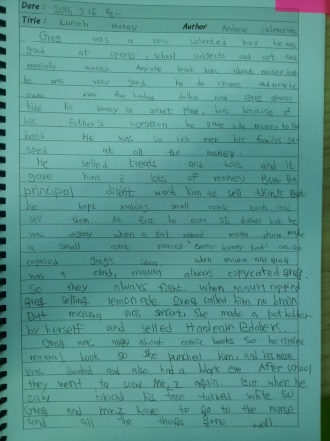 Date : 2015. 2. 16
Title : Lunch money Author Andrew celements
Greg was a very talented boy. he was
good at sports, school subjects and art and
especially money. Anyone teach him above money but
he was very good. he do chores and
even the hundred dollars one. Greg always
hide his money in secret place, but because of
his father's he save the money to the
bank. He was so rich men his families
at all the money.
He selled treats and toys and it
gave him lots of money. But the
principal didn't want him to sell things. But
he kept making small comic books and
sell them. At first he earn 25 dollars but he
was angry when a girl named maura shaw made
a small comic named
copied Greg's idea. when maura and greg
was a child, maura always copycated greg
So they always fight. when maura copied
greg selling lemonade Greg called him no brain.
But maura was smart. She made a potholder
by herself and selled Hardlean Potholders.
Greg was angry about comic books so he
maura's book so she punched him, and his nose
was and also had a black eye. After school
they went to saw Mr. Z again. But when he
saw blood his face turned white so
Greg and Mr. Z have to go to the nurse
and all the things gone well.